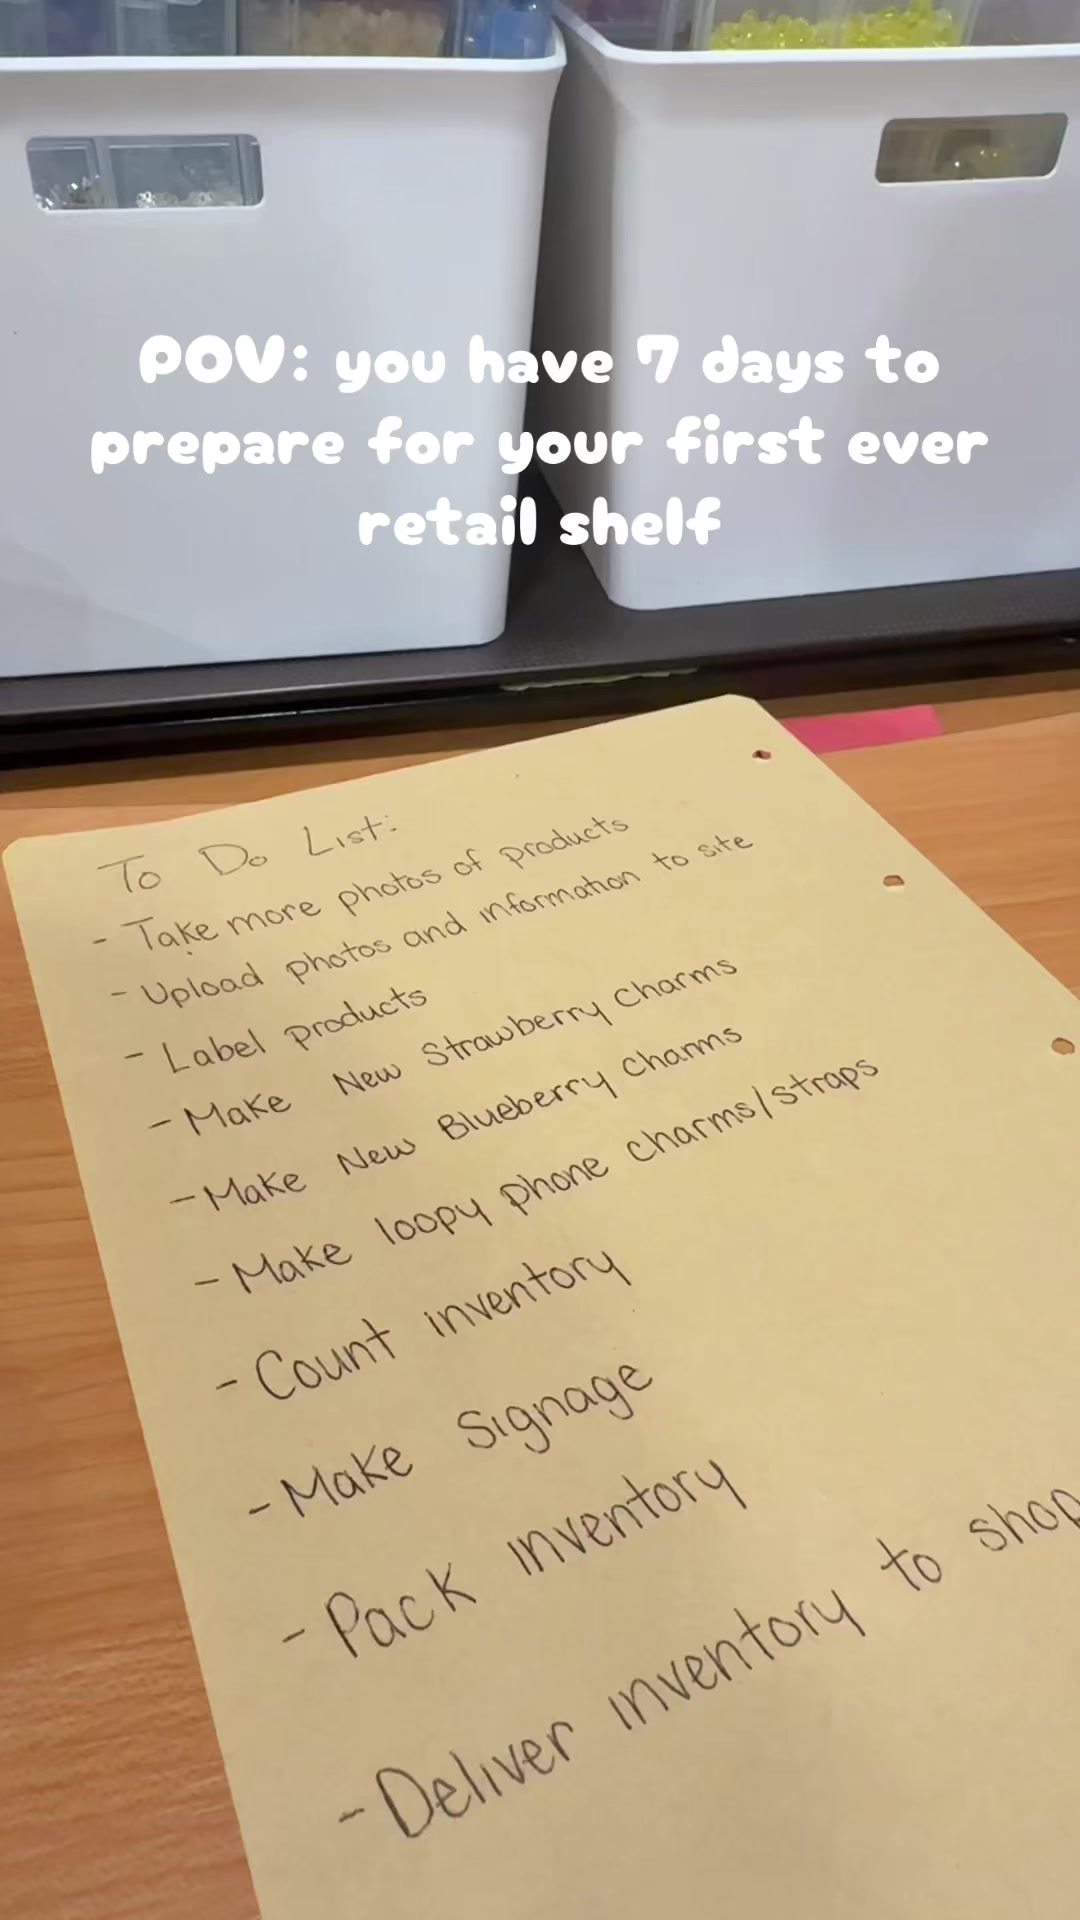 POV: you have 7 days to
prepare for your first ever
retail shelf
To Do List:
- Take more photos of products
- Upload photos and information to site
- Label products
- Make New Strawberry Charms
- Make New Blueberry Charms
- Make loopy phone charms/straps
- Count inventory
- Make Signage
- Pack inventory
- Deliver inventory to shop